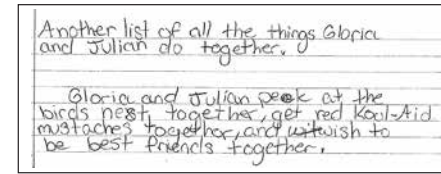 Another list of all the things Gloria
and Julian do together.
Gloria and Julian peek at the
birds nest, together, get red Kool-Aid
mustaches together, and wish to
be best friends together.